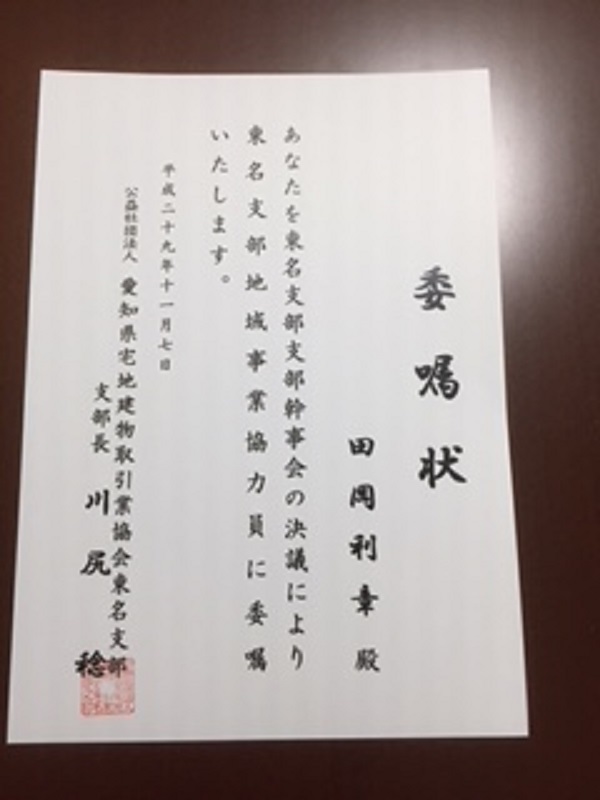 委嘱状
田岡利章 殿
あなたを東名支部支部幹事会の決議により
東名支部地域事業協力員に委嘱
いたします。
平成二十九年十一月七日
公益社団法人 愛知県宅地建物取引業協会東名支部
支部長 川尻 稔